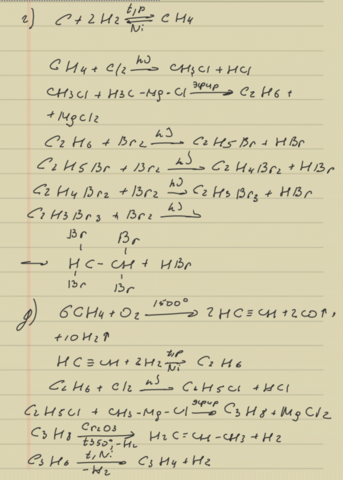 г) C + 2H2 ⇌ CH4 (t,p / Ni)
CH4 + Cl2 →(hν) CH3Cl + HCl
CH3Cl + H3C-Mg-Cl →(эфир) C2H6 +
+ MgCl2
C2H6 + Br2 →(hν) C2H5Br + HBr
C2H5Br + Br2 →(hν) C2H4Br2 + HBr
C2H4Br2 + Br2 →(hν) C2H3Br3 + HBr
C2H3Br3 + Br2 →(hν)
Br Br
→ HC - CH + HBr
Br Br
д) 6CH4 + O2 →(1500°) 2HC≡CH + 2CO↑,
+ 10H2↑
HC≡CH + 2H2 →(t,p / Ni) C2H6
C2H6 + Cl2 →(hν) C2H5Cl + HCl
C2H5Cl + CH3-Mg-Cl →(эфир) C3H8 + MgCl2
C3H8 →(Cr2O3 / t350°, -H2) H2C=CH-CH3 + H2
C3H6 →(t,Ni / -H2) C3H4 + H2